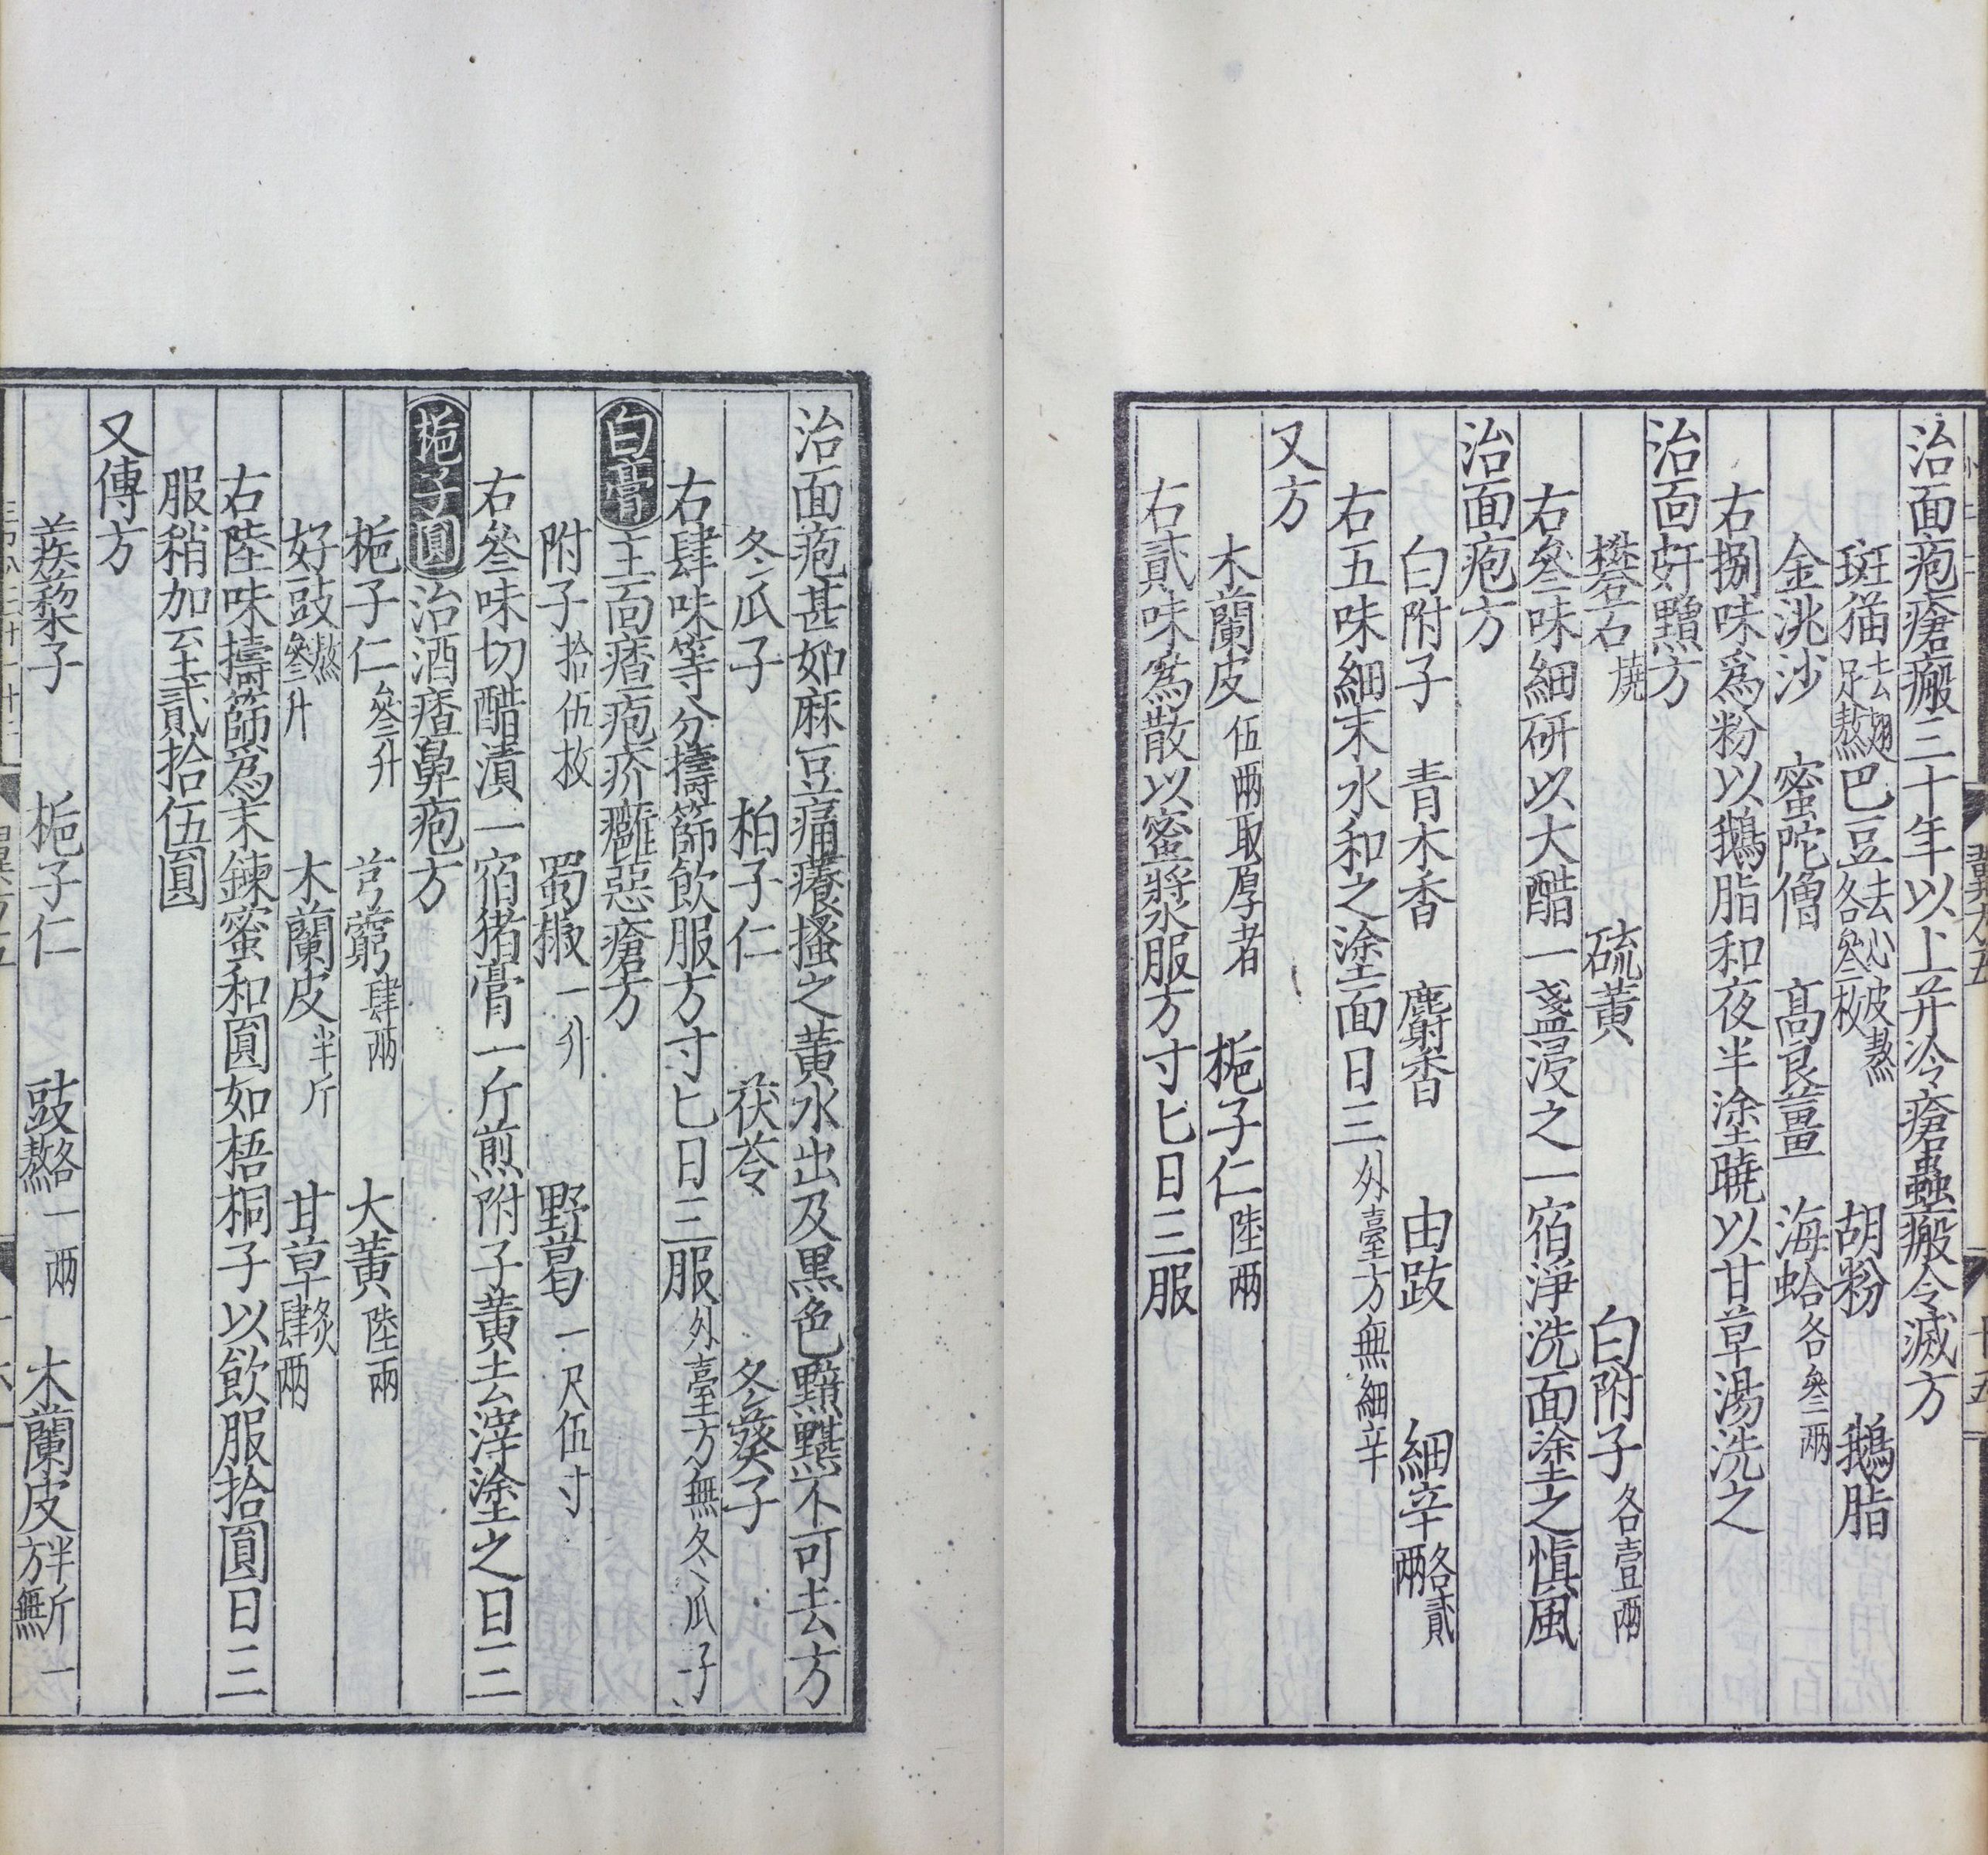 治面疱瘡瘢三十年以上并冷瘡蟲瘢令滅方
斑猫去翅足熬 巴豆去心皮熬各叄枚 胡粉 鵝脂
金洮沙 蜜陀僧 高良薑 海蛤各叄兩
右捌味爲粉以鵝脂和夜半塗曉以甘草湯洗之
治面皯䵴方
礬石燒 硫黃 白附子各壹兩
右叄味細研以大酢一盞浸之一宿淨洗面塗之慎風
治面疱方
白附子 青木香 麝香 由跋 細辛各貳兩
右五味細末水和之塗面日三外臺方無細辛
又方
木蘭皮伍兩取厚者 梔子仁陸兩
右貳味爲散以蜜漿水服方寸匕日三服
治面疱甚如麻豆痛癢搔之黃水出及黑色黯䵳不可去方
冬瓜子 柏子仁 茯苓 冬葵子
右肆味等分擣篩飲服方寸匕日三服外臺方無冬瓜子
白膏主面㾴疱疥癰惡瘡方
附子拾伍枚 蜀椒一升 野葛一尺伍寸
右叄味切醋漬一宿猪膏一斤煎附子黃去滓塗之日三
梔子圓治酒㾴鼻疱方
梔子仁叄升 芎藭肆兩 大黃陸兩
好豉熬叄升 木蘭皮半斤 甘草炙肆兩
右陸味擣篩爲末鍊蜜和圓如梧桐子以飲服拾圓日三
服稍加至貳拾伍圓
又傅方
蒺藜子 梔子仁 豉熬各一兩 木蘭皮半斤一方無